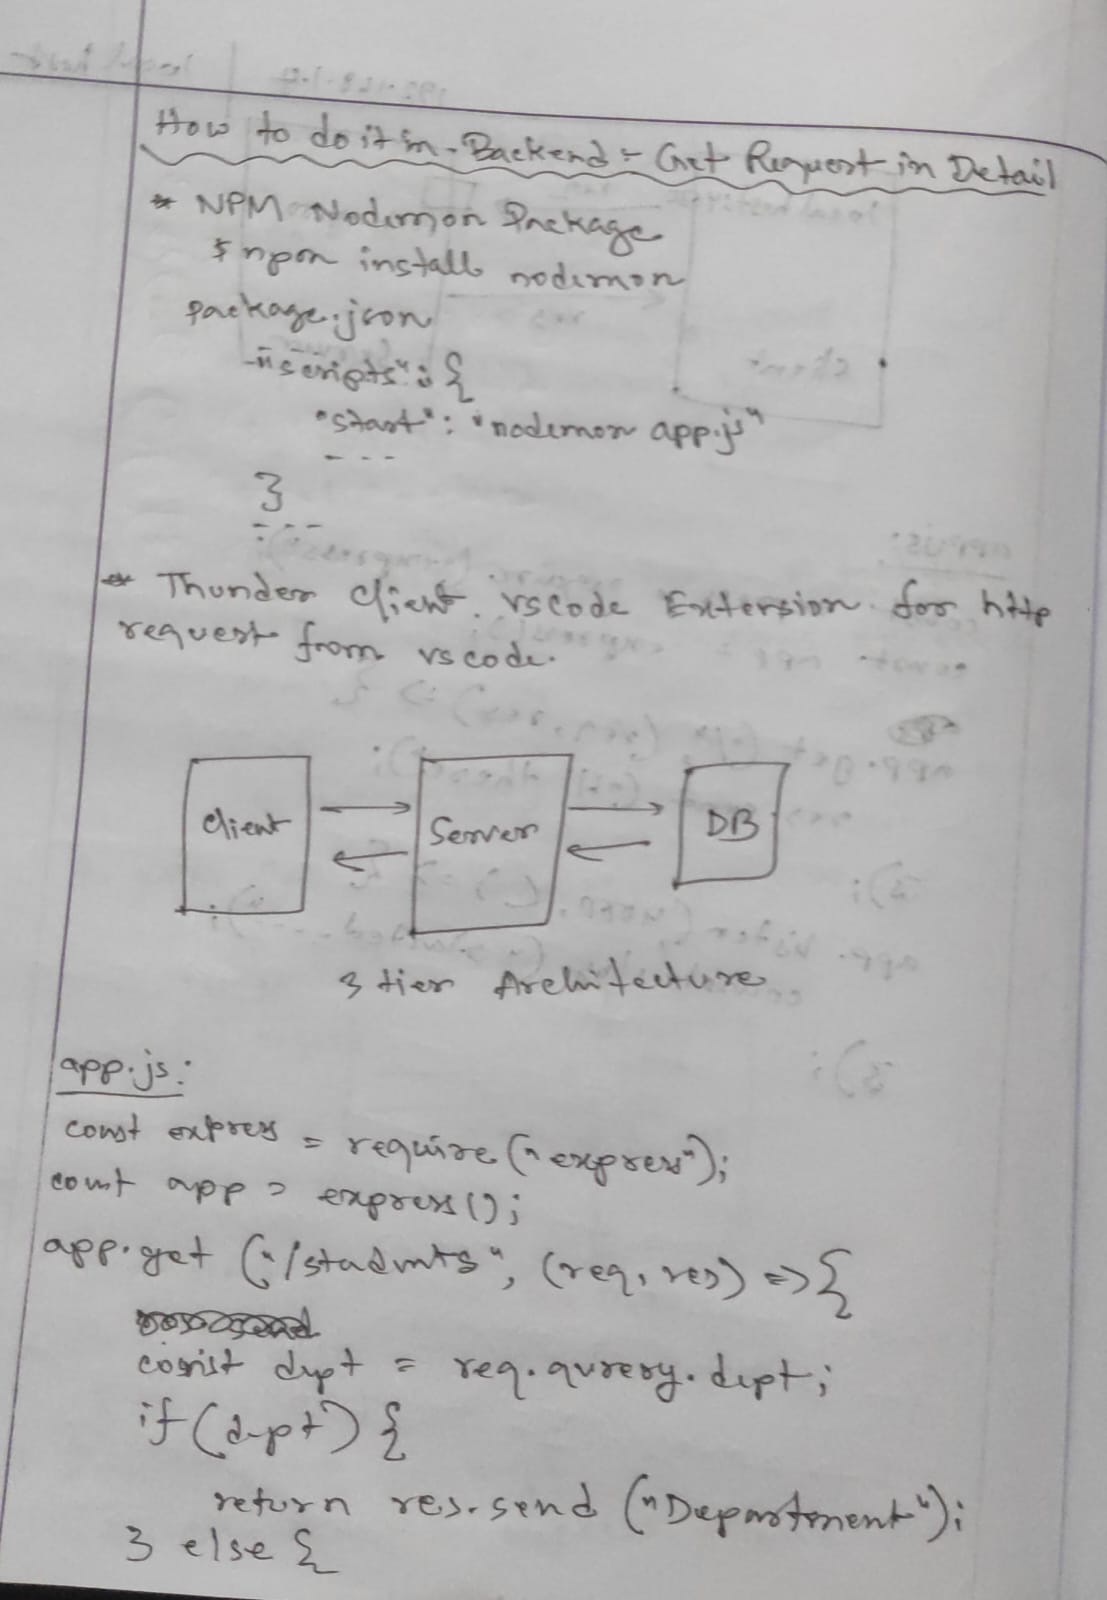 How to do it in - Backend - Get Request in Detail
* NPM Nodemon Package
$ npm install nodemon
package.json
"scripts": {
"start": "nodemon app.js"
- - -
}
- - -
* Thunder Client. vscode Extension for http
request from vscode.
Client
Server
DB
3 tier Architecture
app.js:
const express = require("express");
const app = express();
app.get("/students", (req, res) => {
const dept = req.qurery.dept;
if (dept) {
return res.send("Department");
} else {